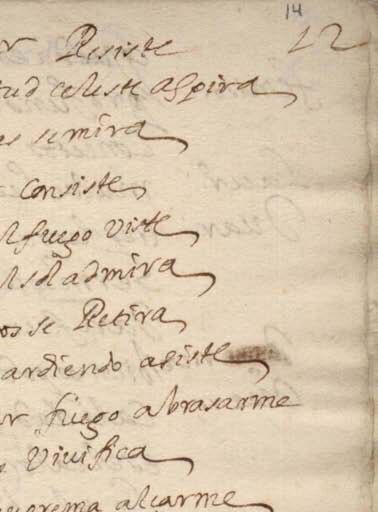 14
12
Resiste
celeste aspira
se mira
consiste
fuego viste
admira
se Retira
ardiendo asiste
fuego abrasarme
Viuifica
alçarme